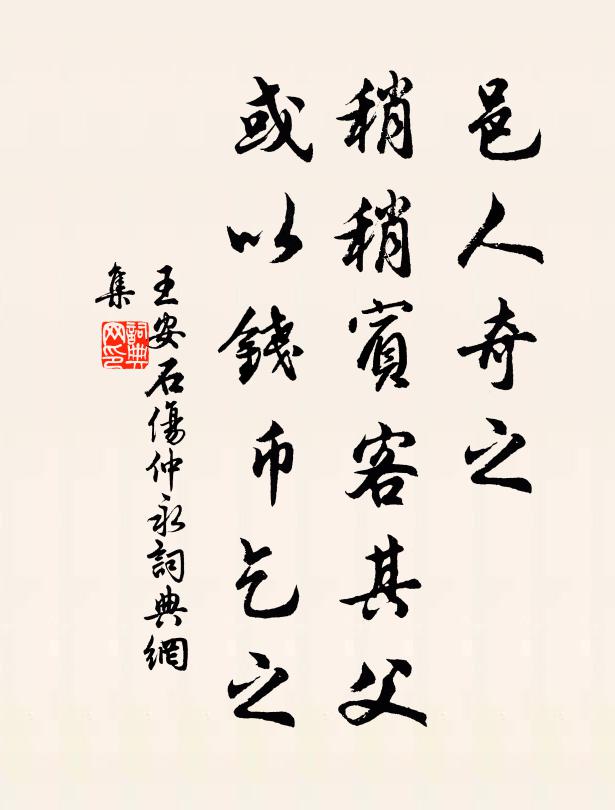 邑人奇之
稍稍賓客其父
或以錢币乞之
王安石傷仲永詞典網
集
詞典网印